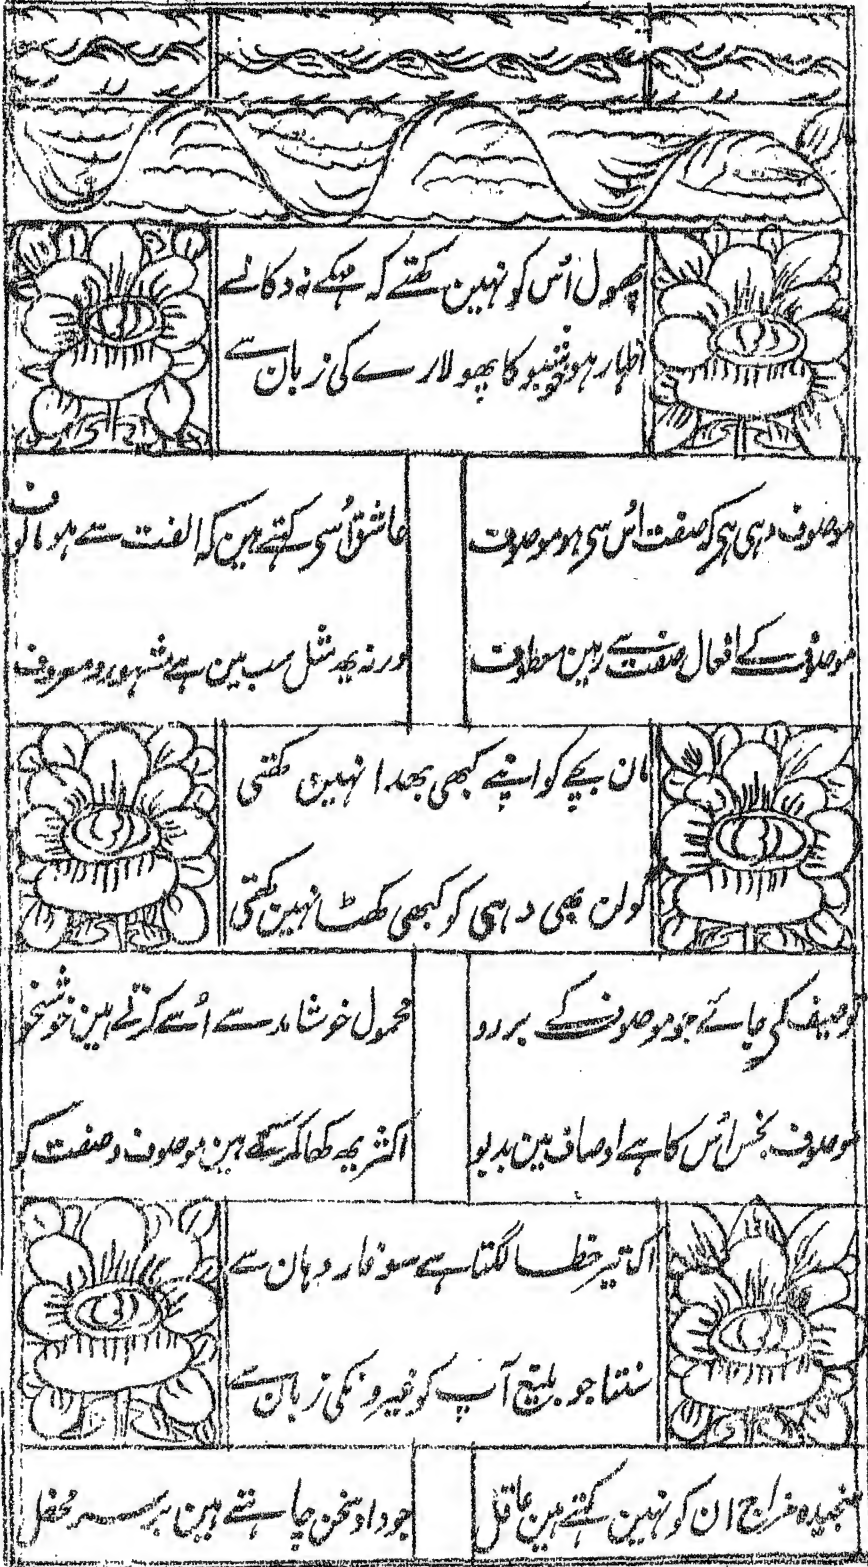 پھول اُس کو نہین کہتے کہ مہکے نہ دکان سے
اظہار ہو خوشبو کا پھولارے کی زبان سے
موصوف وہی ہی کہ صفت اُس سی ہو موصوف
عاشق اُسی کہتے ہین کہ الفت سے ہو مالوف
موصوف کے افعال صفت سے رہین معطوف
ورنہ یہ مثل سب مین ہے مشہور و معروف
مان بچے کو اپنے کبھی بھدا نہین کہتی
گولن بھی دہی کو کبھی کھٹا نہین کہتی
توصیف کی جائے جو موصوف کے بر رو
محمول خوشامد سے اُسے کرتے ہین خوشخو
موصوف بخس اُس کا ہے اوصاف مین بدبو
اکثر یہ کہا کرتے ہین موصوف و صفت کو
اک تیر خطا لگتا ہے سوفار دہان سے
سنتا جو بلیغ آپ کو غیرونکی زبان سے
سنجیدہ مزاج ان کو نہین کہتے ہین عاقل
جو داد سخن چاہتے ہین بر سر محفل